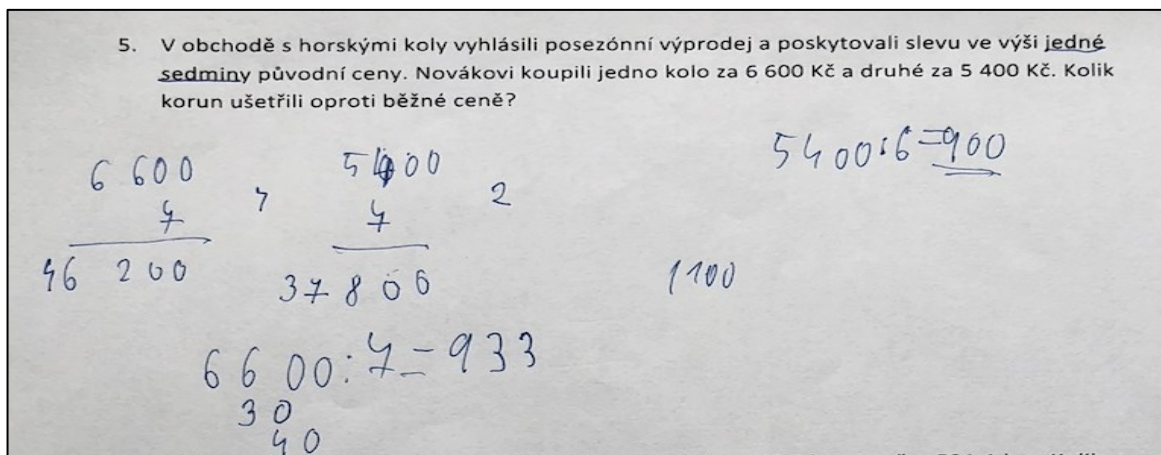 5. V obchodě s horskými koly vyhlásili posezónní výprodej a poskytovali slevu ve výši jedné
sedminy původní ceny. Novákovi koupili jedno kolo za 6 600 Kč a druhé za 5 400 Kč. Kolik
korun ušetřili oproti běžné ceně?
5400:6=900
6 600
7
46 200
5400
7
37 800
2
1100
6600:7=933
30
40